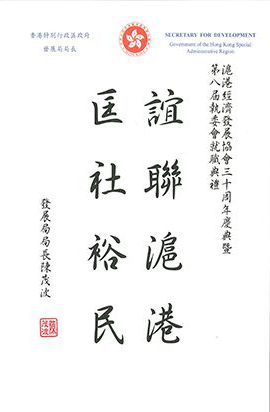 香港特別行政區政府
發展局局長
SECRETARY FOR DEVELOPMENT
Government of the Hong Kong Special
Administrative Region
滬港經濟發展協會三十周年慶典暨
第八屆執委會就職典禮
誼聯滬港
匡社裕民
發展局局長陳茂波